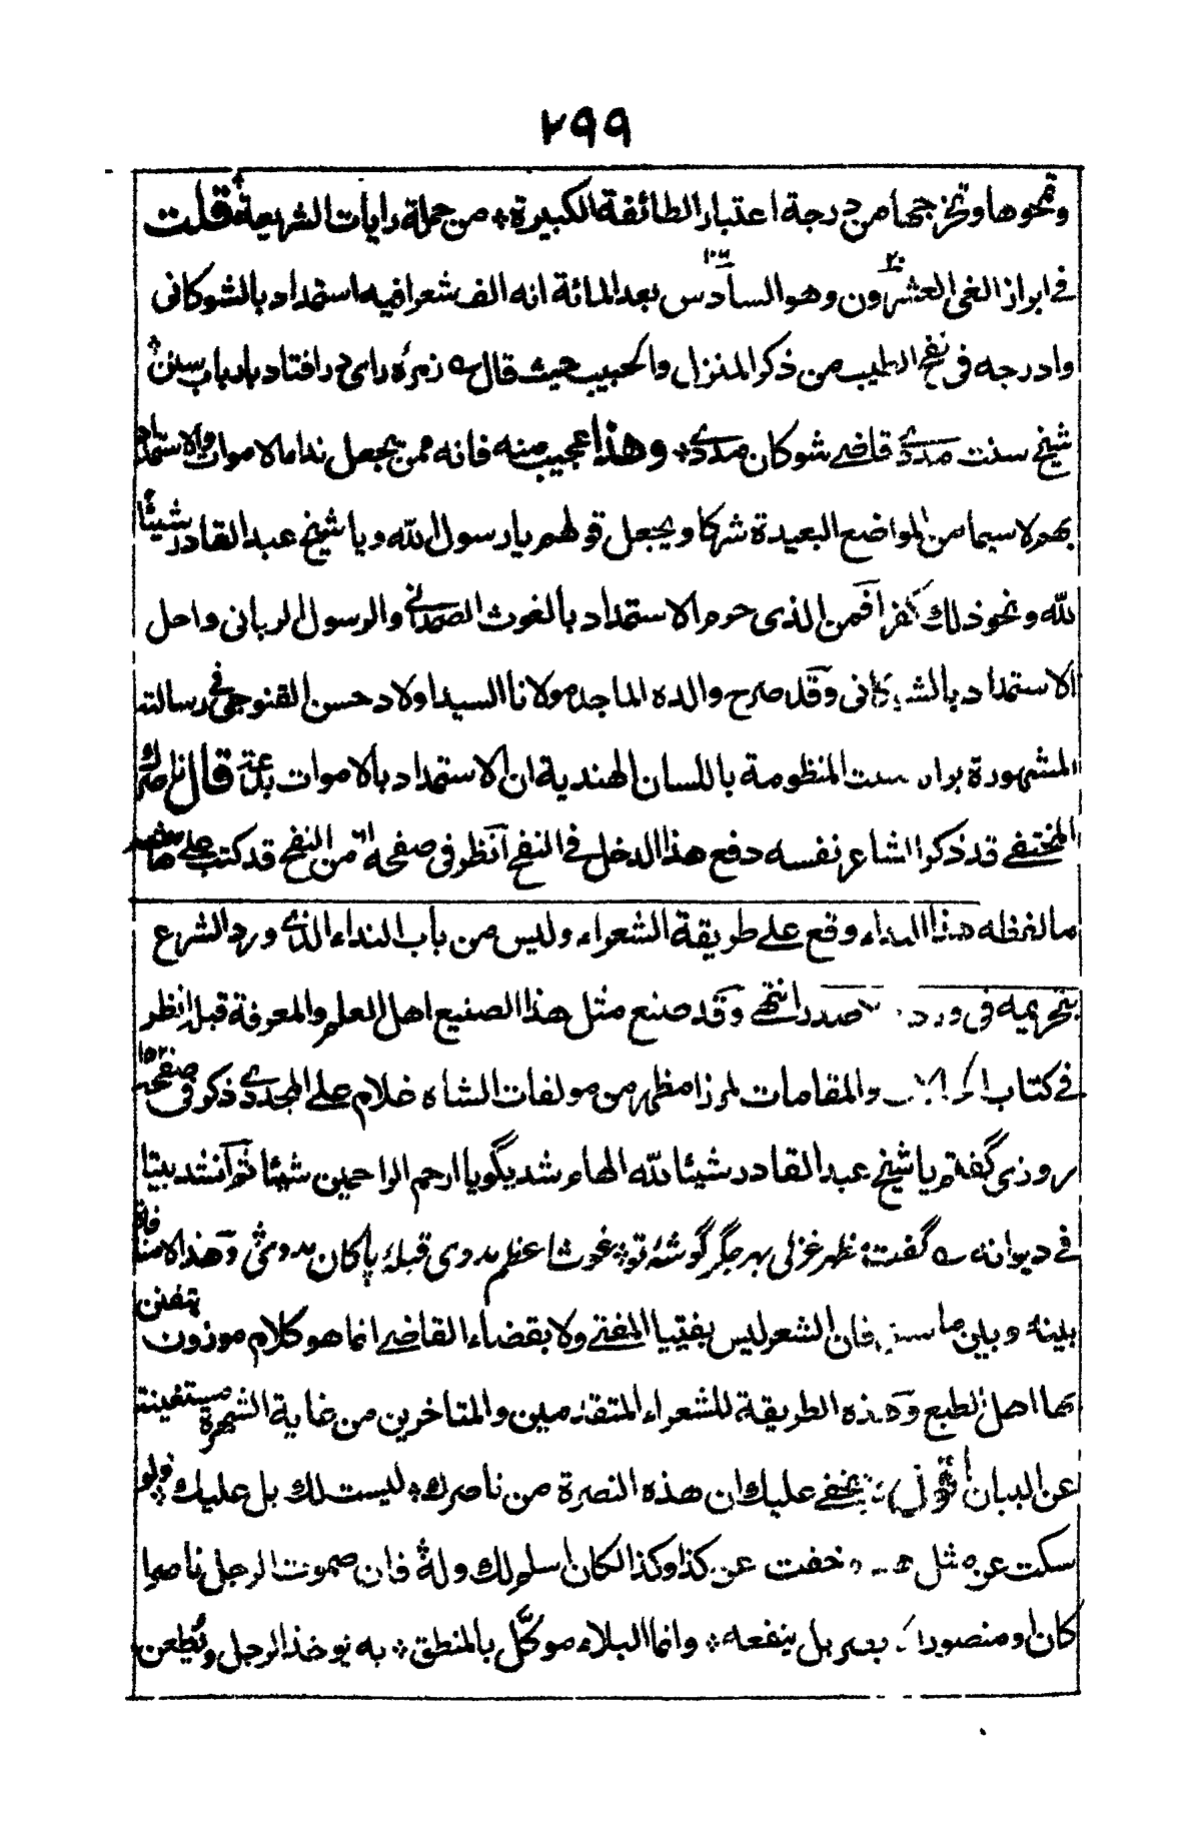 ٢٩٩
وتمحوها وتخرجها من درجة اعتبار الطائفة الكبيرة من حملة رايات الشريعة قلت
في ابراز الغي العشرون وهو السادس بعد المائة انه الف شعرا فيه استمداد بالشوكانى
وادرجه فى نفح الطيب من ذكر المنزل والحبيب حيث قال ے زمرۂ رای در افتاد بارباب سنن
شيخ سنت مددے قاضے شوكان مددے وهذا عجيب منه فانه ممن يجعل نداء الاموات والاستمداد
بهم لا سيما من المواضع البعيدة شركا ويجعل قولهم يا رسول الله ويا شيخ عبد القادر شيئا
لله ونحو ذلك كفرا فمن الذى حرم الاستمداد بالغوث الصمدانے والرسول الربانى واحل
الاستمداد بالشوكانى وقد صرح والده الماجد مولانا السيد اولاد حسن القنوجى في رسالته
المشهورة براه سنت المنظومة باللسان الهندية ان الاستمداد بالاموات بدعة قال ناصرك
المختفے قد ذكر الشاعر نفسه دفع هذا الدخل فے النفح انظر فى صفحة من النفح قد كتب علے هامشه
ما لفظه هذا النداء وقع علے طريقة الشعراء وليس من باب النداء الذے ورد الشرع
بتحريمه فى صدر انتهے وقد صنع مثل هذا الصنيع اهل العلم والمعرفة قبل انظر
فے كتاب والمقامات لمرزا مظهر من مولفات الشاه غلام علے المجددے ذكر فى صفحة ١٥٢
روزى گفتم يا شيخ عبد القادر شيئا لله الهام شد بگو يا ارحم الراحمين شيئا ثم انشد بيتا
فے ديوانه ے گفت مظهر غزلى بهر جگر گوشۂ تو غوث اعظم مددى قبلۂ پاكان مددى وهذا لا منافاة
بينه وبين ما سبق فان الشعر ليس بفتيا المفتے ولا بقضاء القاضے انما هو كلام موزون يتفنن
بها اهل الطبع وهذه الطريقة للشعراء المتقدمين والمتاخرين من غاية الشهرة مستغنية
عن البيان اقول لا يخفے عليك ان هذه النصرة من ناصرك ليست لك بل عليك ولو
سكت عن مثل هذه خفت عن كذا وكذا لكان اسلم لك وله فان صموت الرجل ناصرا
كان او منصورا بل ينفعه وانما البلاء موكّل بالمنطق به يوخذ الرجل ويُطعن